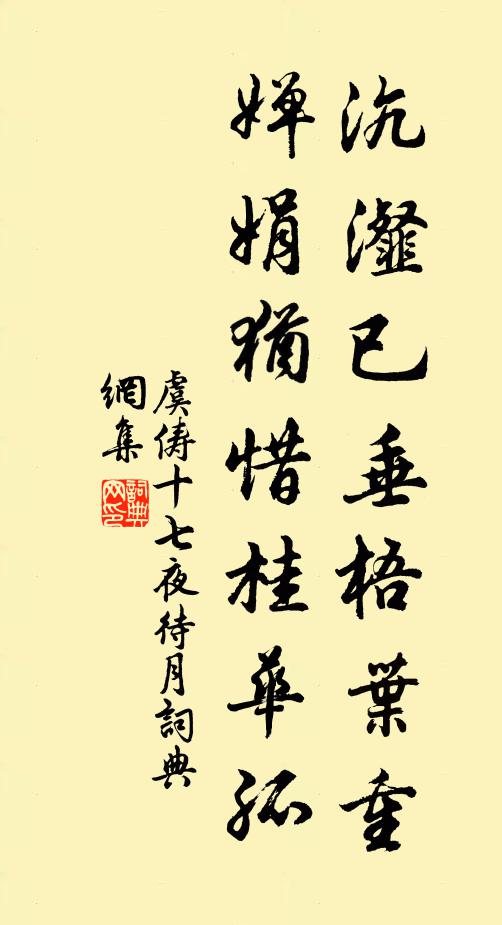 沆瀣已垂梧葉重
嬋娟猶惜桂華孤
虞儔十七夜待月詞典
網集
詞典網印